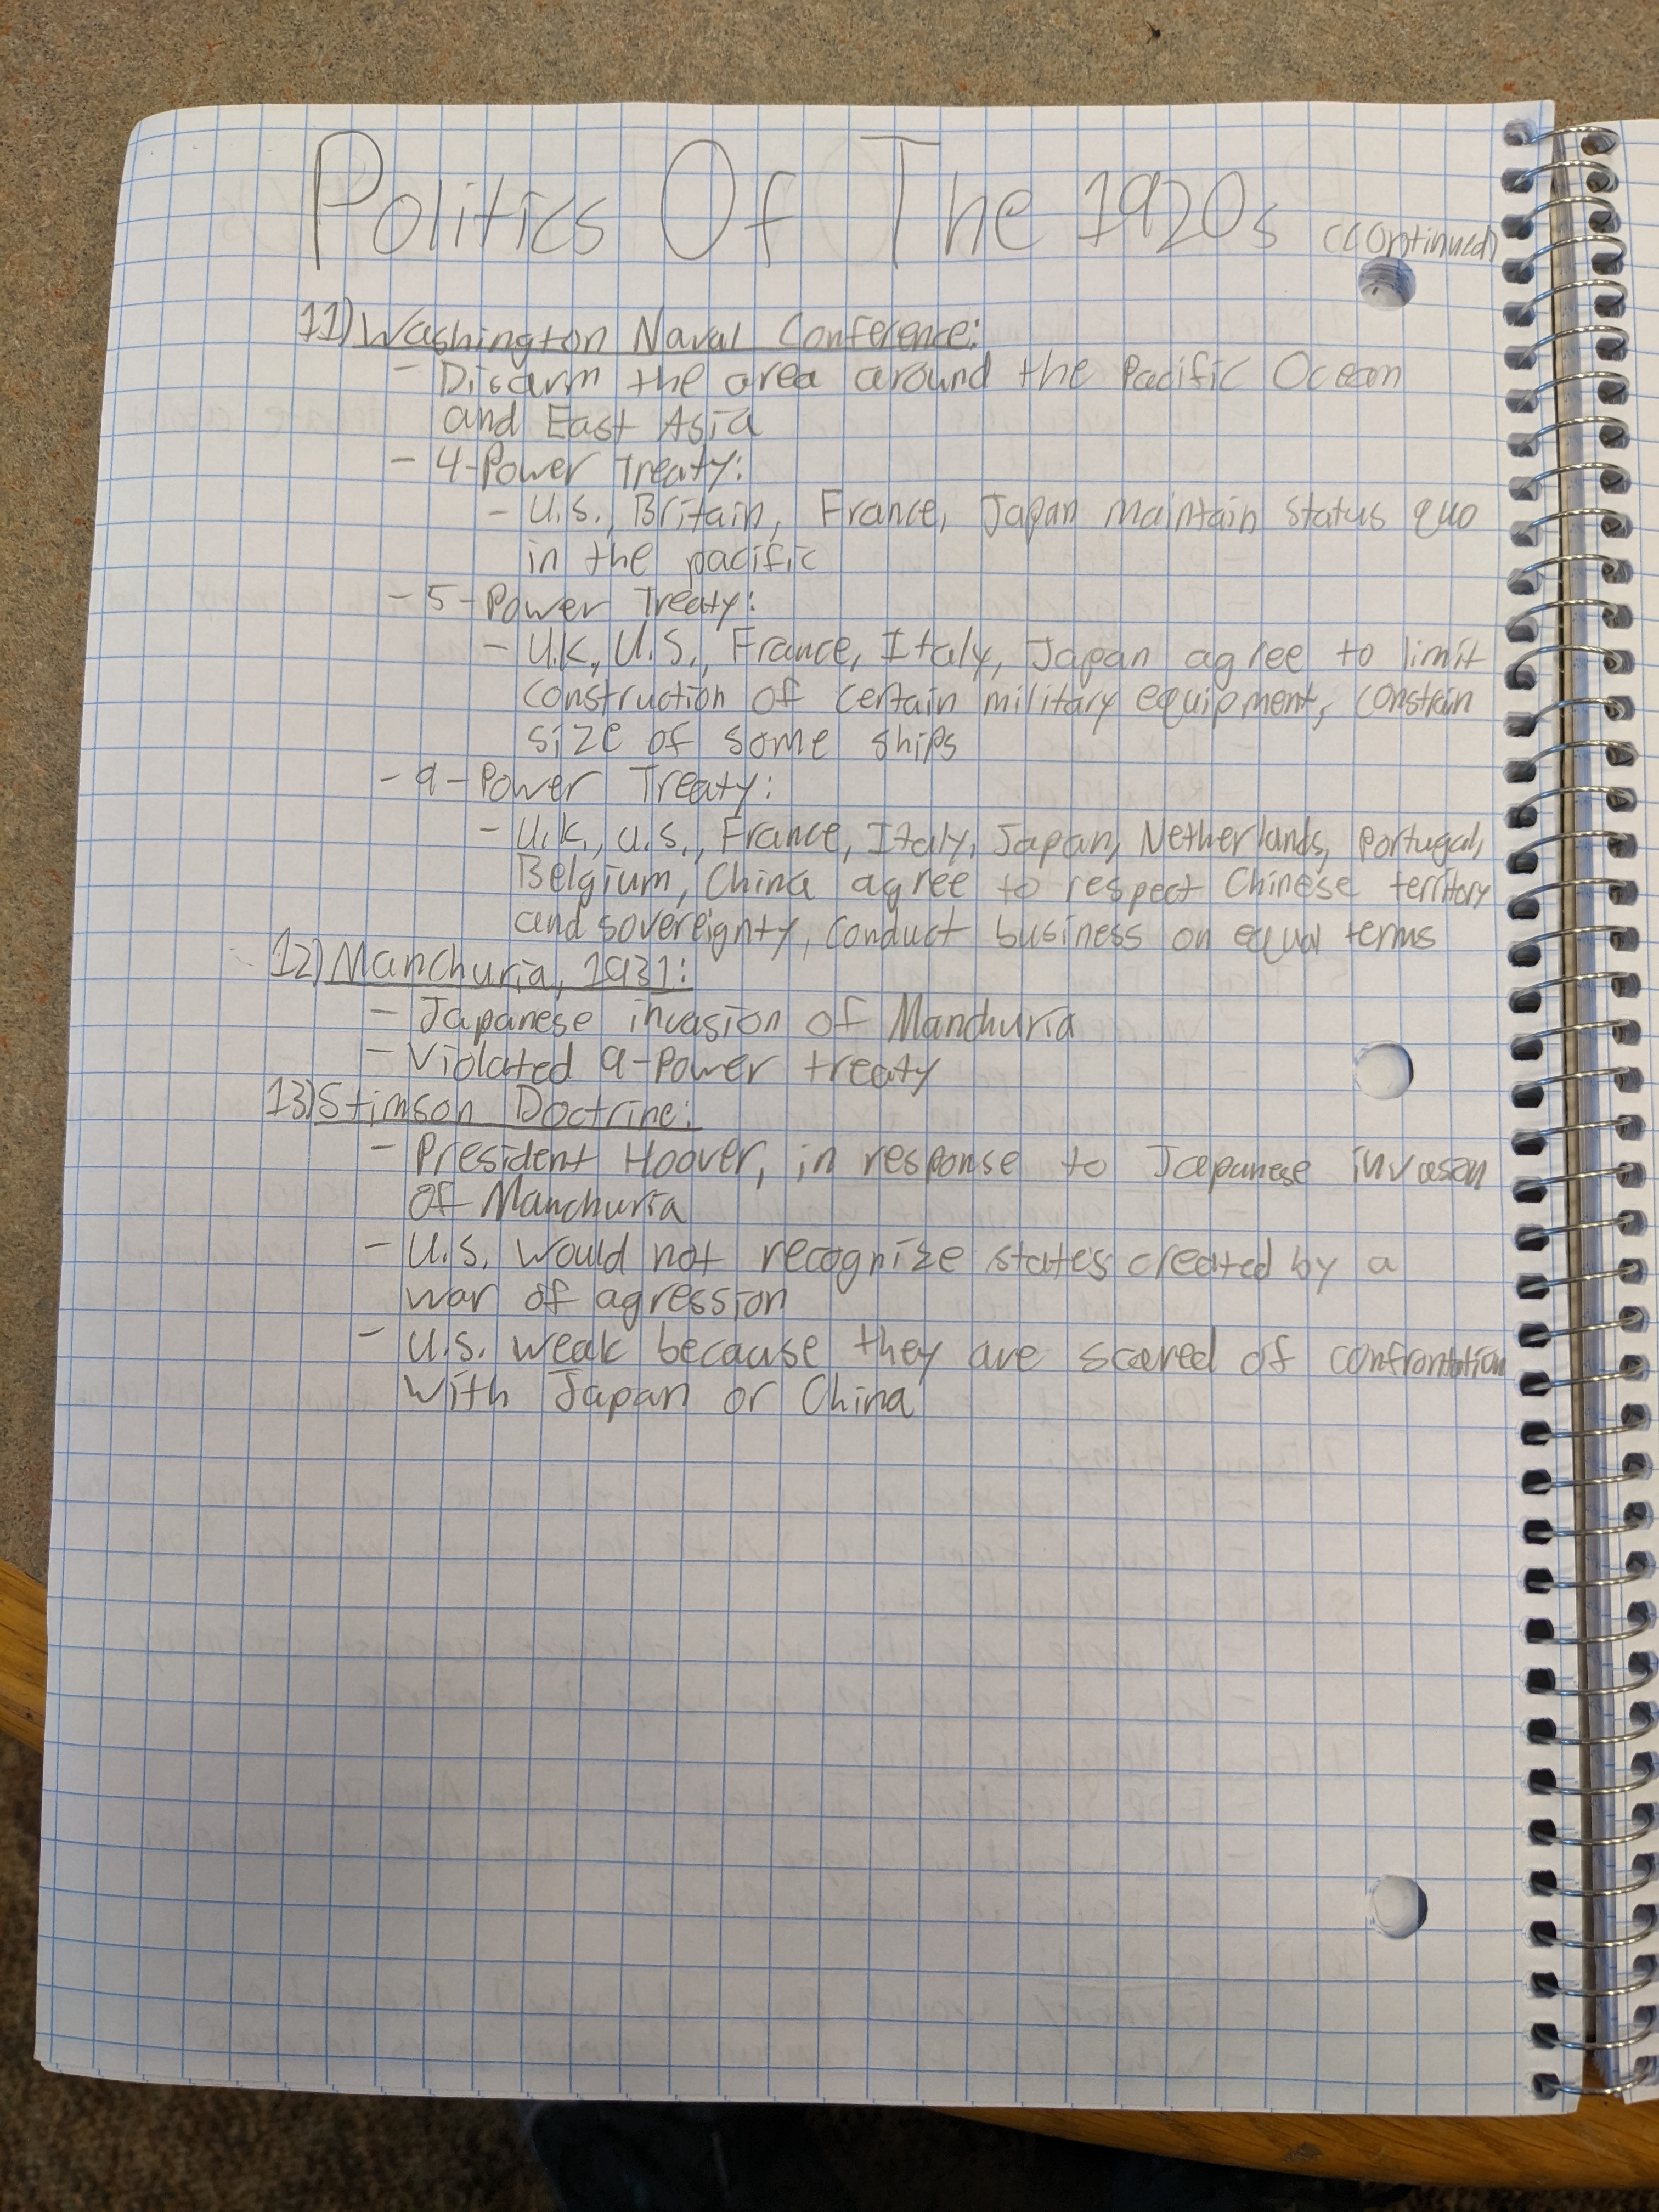 Politics Of The 1920s (Continued)
11) Washington Naval Conference:
- Disarm the area around the Pacific Ocean
and East Asia
- 4-Power Treaty:
- U.S., Britain, France, Japan maintain status quo
in the pacific
- 5-Power Treaty:
- U.K, U.S., France, Italy, Japan agree to limit
construction of certain military equipment, constrain
size of some ships
- 9-Power Treaty:
- U.K., U.S., France, Italy, Japan, Netherlands, Portugal,
Belgium, China agree to respect Chinese territory
and sovereignty, conduct business on equal terms
12) Manchuria, 1931:
- Japanese invasion of Manchuria
- Violated 9-Power treaty
13) Stimson Doctrine:
- President Hoover, in response to Japanese invasion
of Manchuria
- U.S. would not recognize states created by a
war of agression
- U.S. weak because they are scared of confrontation
with Japan or China